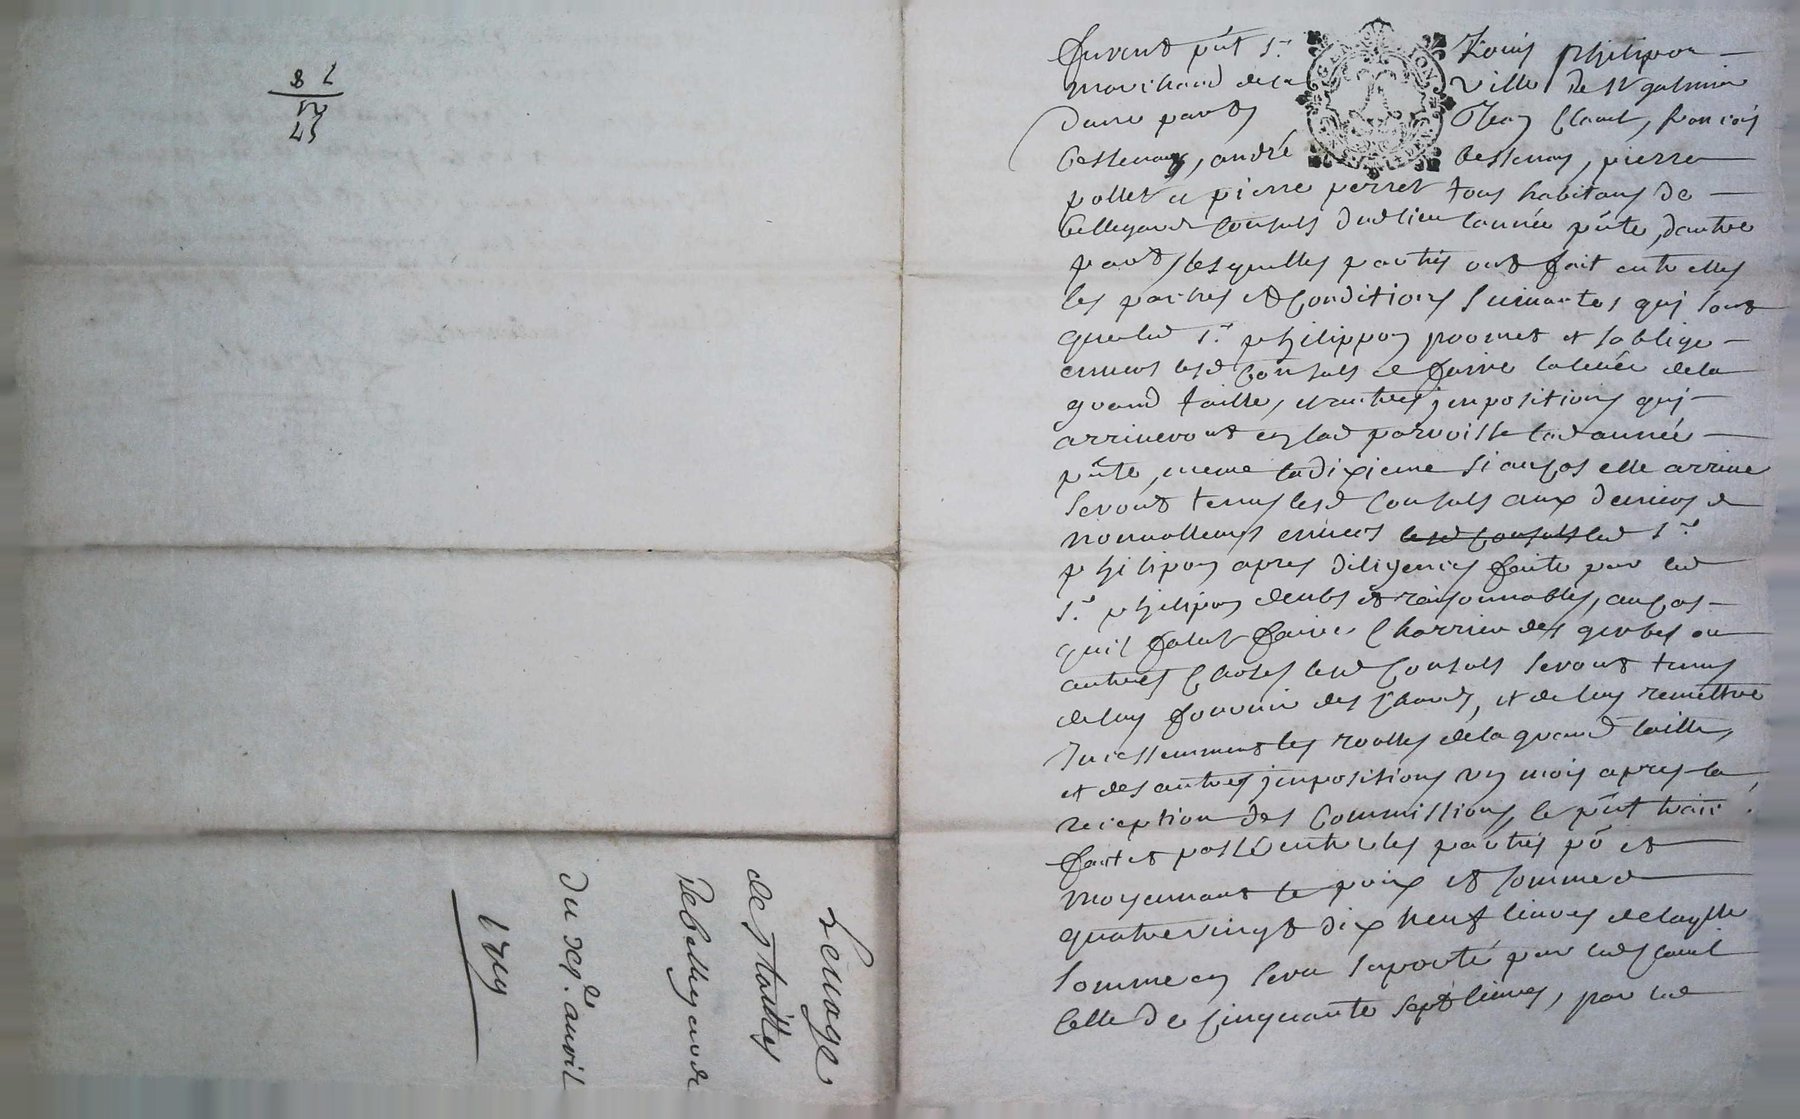 furent pñt Sr Louis philipon
marchand de la ville de St galmier
dune part Jean Claude, francois
bestenay, andré bestenay, pierre
pollet et pierre perret tous habitans de
bellegarde Consuls dud lieu lannée pñte, dautre
part, lesquelles parties ont fait entre elles
les paches et Conditions suivantes qui sont
que led Sr philippon promet et soblige
envers lesd Consuls de faire la levée de la
grand taille, et autres jmpositions qui
arriveront en lad parroisse lad année
pñte, meme la dixieme si au cas elle arrive
seront tenus lesd Consuls aux deniers de
nonvalleurs envers lesd Consuls led Sr
philipon apres diligences faite par led
Sr philipon deubs et raisonnables, au cas
quil falut faire Charrier des gerbes ou
autres Choses lesd Consuls seront tenus
de luy fournir des Chards, et de luy remettre
Incessemment les roolles de la grand taille,
et des autres jmpositions un mois apres la
reception des Commissions, le pñt traité
fait et passé entre les parties pō et
moyennant le prix et somme de
quatrevingt dix neuf livres de laqlle
somme en sera suporté par led Claude
Celle de Cinquante sept livres, par led
Levage
de Tailles
De bellegarde
Du 29e. avril